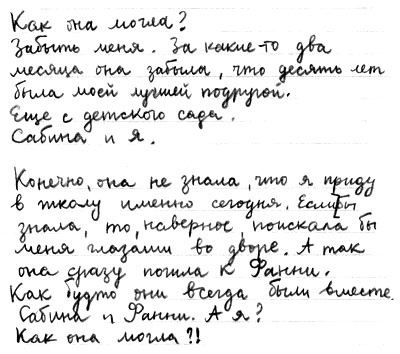 Как она могла?
Забыть меня. За какие-то два
месяца она забыла, что десять лет
была моей лучшей подругой.
Еще с детского сада.
Сабина и я.

Конечно, она не знала, что я приду
в школу именно сегодня. Если бы
знала, то, наверное, поискала бы
меня глазами во дворе. А так
она сразу пошла к Фанни.
Как будто они всегда были вместе.
Сабина и Фанни. А я?
Как она могла?!